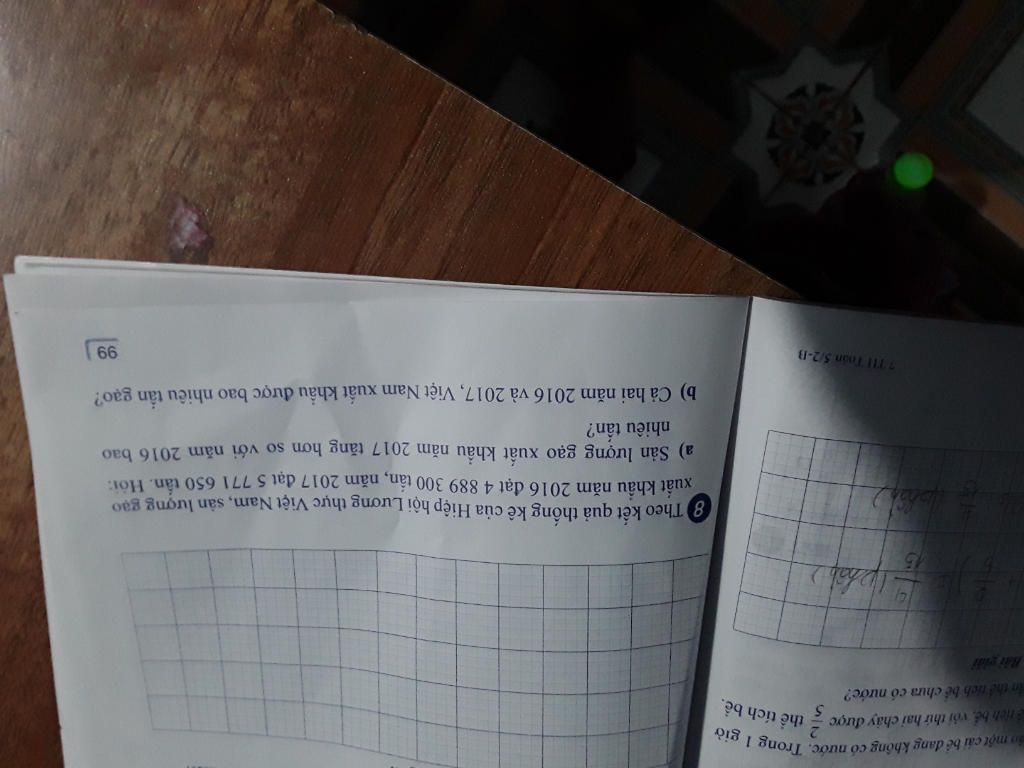 8 Theo kết quả thống kê của Hiệp hội Lương thực Việt Nam, sản lượng gạo
xuất khẩu năm 2016 đạt 4 889 300 tấn, năm 2017 đạt 5 771 650 tấn. Hỏi:
a) Sản lượng gạo xuất khẩu năm 2017 tăng hơn so với năm 2016 bao
nhiêu tấn?
b) Cả hai năm 2016 và 2017, Việt Nam xuất khẩu được bao nhiêu tấn gạo?
99
một cái bể đang không có nước. Trong 1 giờ
bể, vòi thứ hai chảy được 2/5 thể tích bể.
thể tích bể chưa có nước?
Bài giải
7.TH Toán 5/2-B